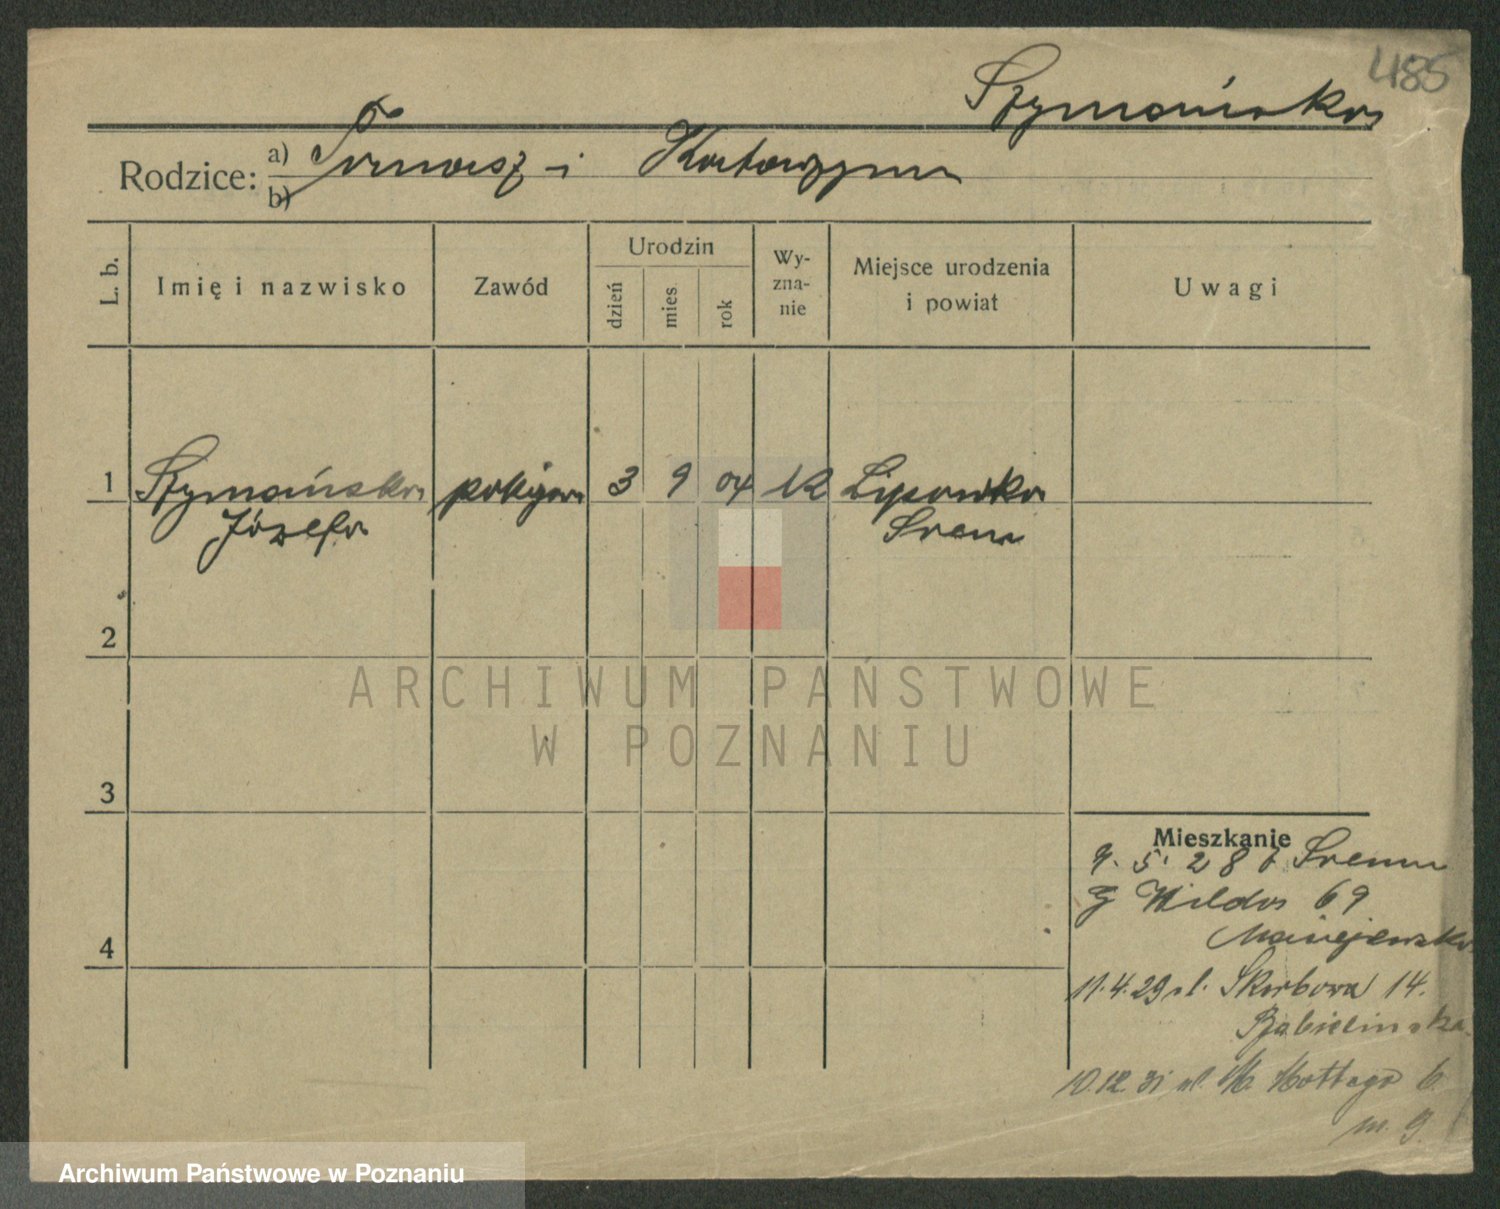 485
Szymańska
Rodzice: a) Tomasz i Katarzyna
b)
L. b. Imię i nazwisko Zawód Urodzin dzień mies rok Wy-zna-nie Miejsce urodzenia i powiat Uwagi
1 Szymańska pokojowa 3 9 04 K Lipówka
Józefa Śrem
2
3
4
Mieszkanie
9. 5. 28 z Śremu
G Wilda 69
Maciejewska
11.4.29 ul. Skarbowa 14.
10.12.31 ul. Mottego 6
m. 9.
ARCHIWUM PAŃSTWOWE
W POZNANIU
Archiwum Państwowe w Poznaniu